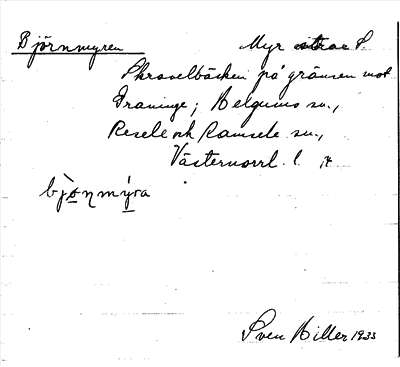 Björnmyren Myr strax S.
Skravelbäcken på gränsen mot
Graninge; Helgums sn.,
Resele och Ramsele sn.,
Västernorrl. l.
bjò̱ṉmýra
Sven Hiller 1933